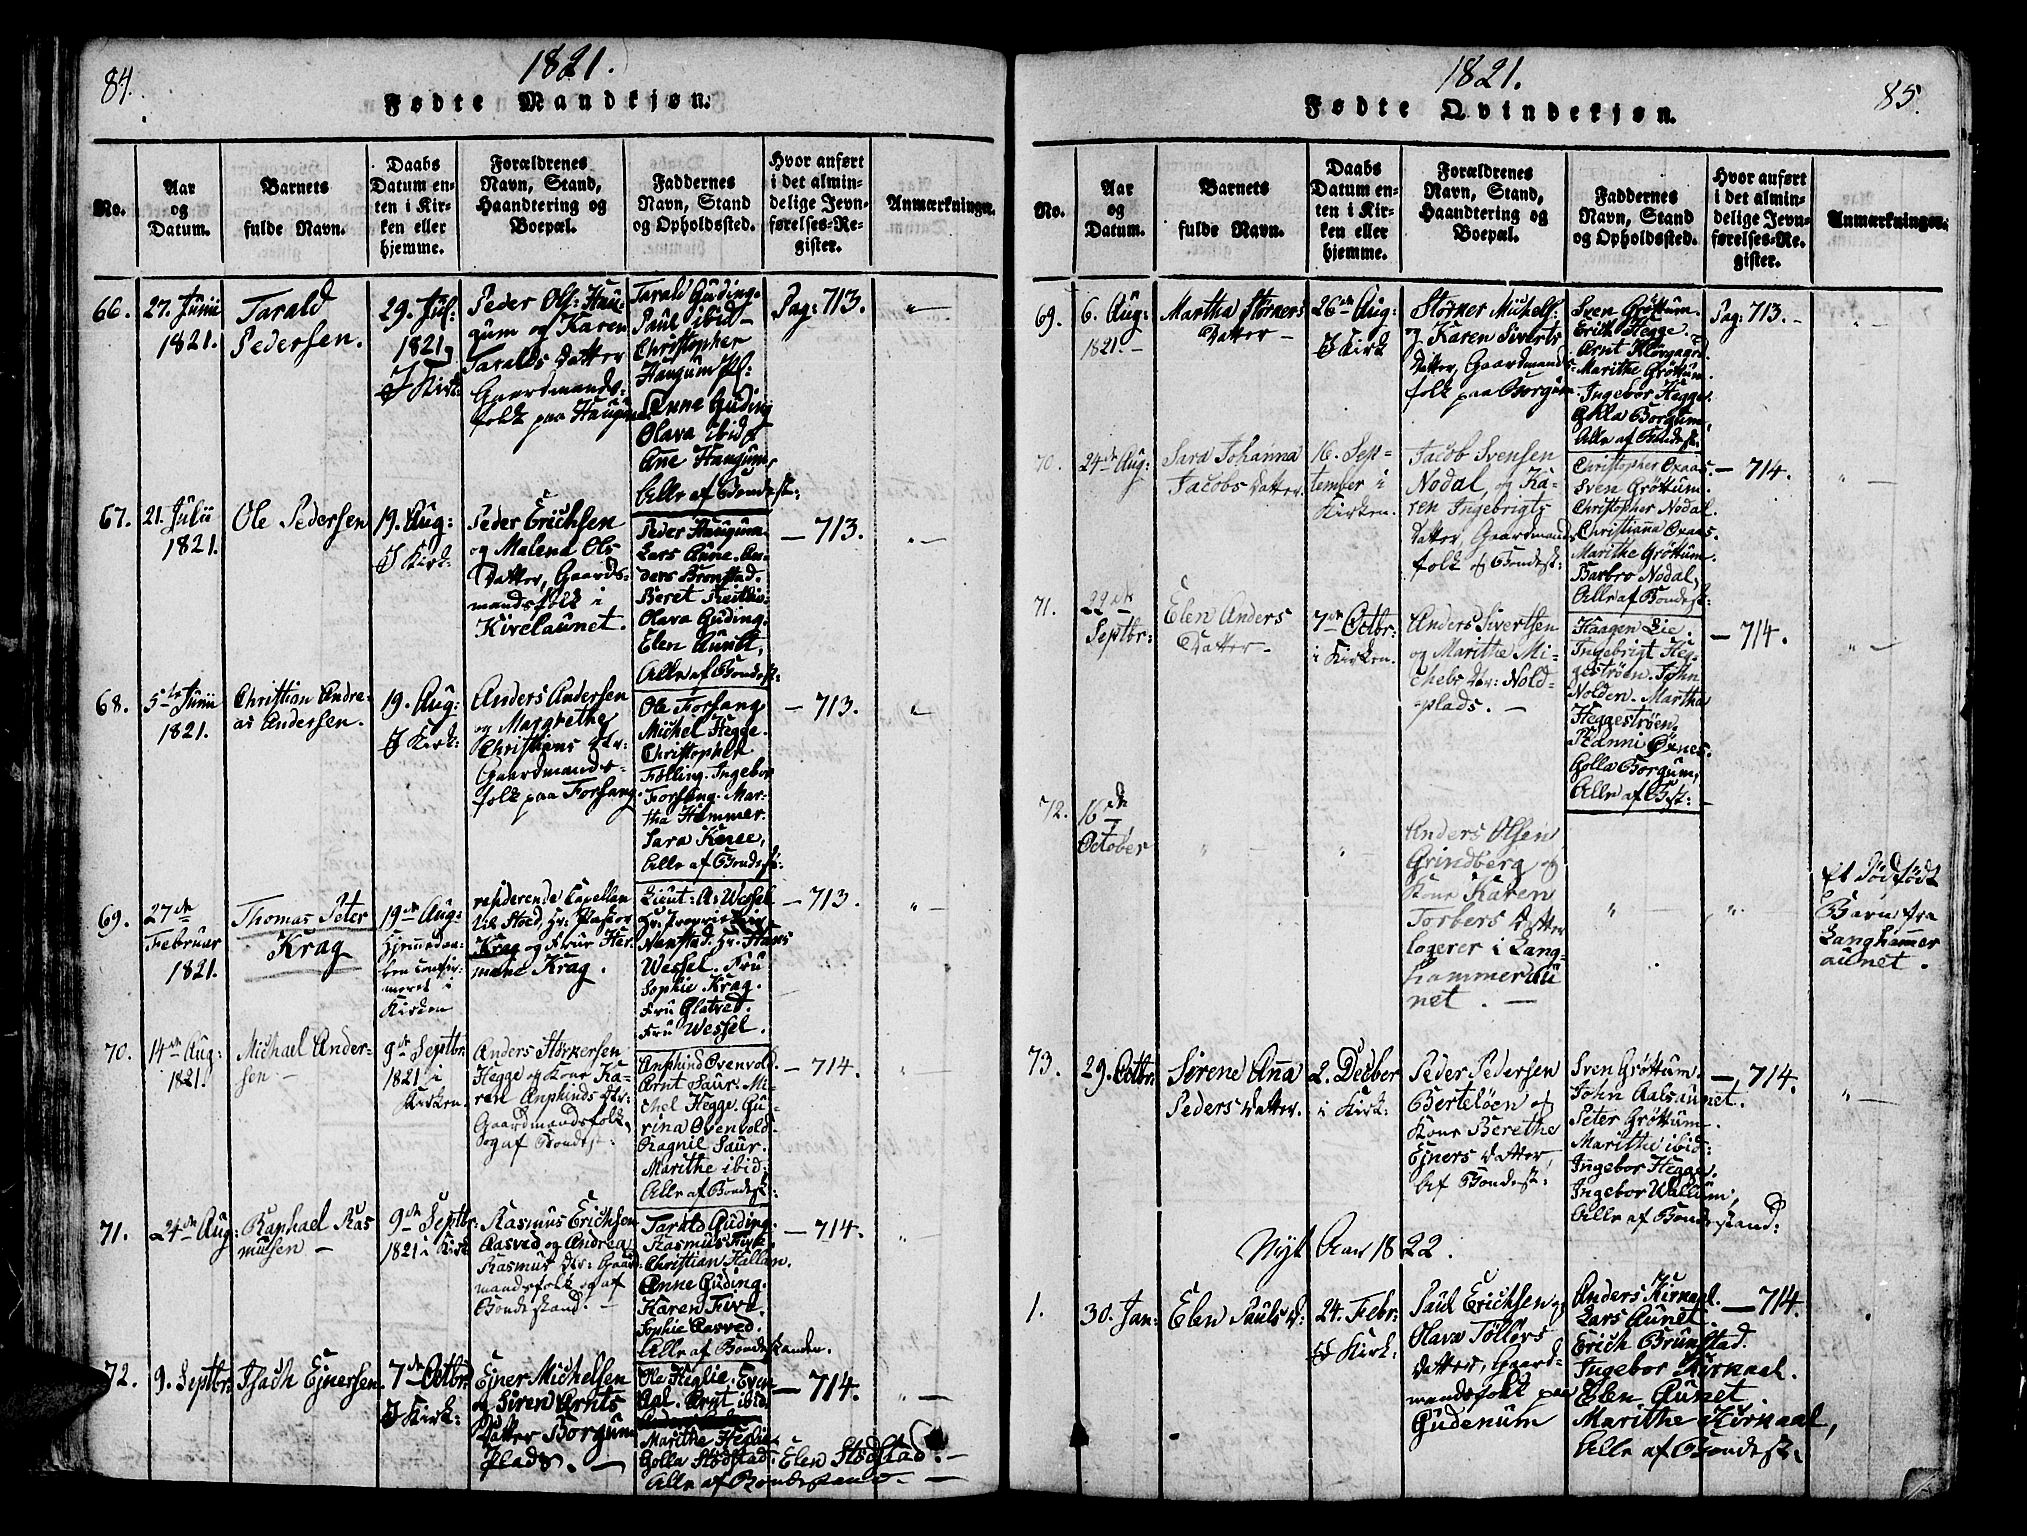 84.
1821.
Fødte Mandkjøn.
No.
Aar
og
Datum.
Barnets
fulde Navn.
Daabs
Datum en-
ten i Kir-
ken eller
hjemme.
Forældrenes
Navn, Stand,
Haandtering og
Boepæl.
Faddernes
Navn, Stand
og Opholdssted.
Hvor anført
i det almin-
delige Jevn-
førelses-Re-
gister.
Anmærkninger.
66.
27. Junii
1821.
Tarald
Pedersen.
29. Jul:
1821
I Kirk:
Peder Ols: Hau-
gum og Karen
Taralds Datter
Gaardmands-
folk paa Haugum
Tarald Guding.
Paul ibid
Christopher
Haugum
Anna Guding
Olava ibid
Ane Haugum,
Alle af Bondest:
Pag: 713.
67.
21. Julii
1821.
Ole Pedersen
19. Aug:
I Kirk:
Peder Erichsen
og Malena Ols
Datter, Gaards-
mandsfolk i
Kirelaunet.
Peder Haugum
Lars Aune. An-
ders Brunstad.
Beret
Olava Guding.
Elen Aunet,
Alle af Bondest:
713.
68.
5te Junii
1821.
Christian Andre-
as Andersen.
19. Aug:
I Kirk:
Anders Andersen
og Margrethe
Christians Dtr:
Gaardmands-
folk paa Forsang.
Ole Forsang
Michel Hegge.
Christopher
Følling. Ingebor
Forsang. Mar-
tha Hammer.
Sara
Alle af Bondest:
713.
69.
27de
Februar
1821.
Thomas Peter
Krag
19de Aug:
Hjemmedaa-
ben confir-
meret i
Kirken
residerende Capellan
til Stod, Hr: Pastor
Krag og Frue Her-
mane Krag.
Lieut: A: Wessel
Hr: Proprietair
Hr. Hans
Wessel. Fru
Sophie Krag.
Fru
Fru Wessel.
713.
70.
14de Aug:
1821.
Michael Ander-
sen
9de Septbr:
1821 i
Kirken.
Anders Størkersen
Hegge og Kone Ka-
ren Anphinds Dtr:
Gaardmandsfolk,
og af Bondest:
Anphind Ovenvold.
Arnt Saur. Mi-
chel Hegge. Gu-
rina Ovenvold.
Ragnil Saur.
Marithe ibid:
Alle af Bondest:
714.
71.
24de Aug:
Raphael Ras
musen
9de Septbr:
1821 i Kirk
Rasmus Erichsen
Aasved og Andrea
Rasmus Dtr: Gaard-
mandsfolk og af
Bondestand.
Tarald Guding.
Rasmus
Christian Hallan.
Anne Guding.
Karen
Sophie Aasved.
Alle af Bondestanden.
714.
72.
9. Septbr:
Isach Ejnersen
7de Octbr:
I Kirk:
Ejner Michelsen
og Siren Arnts
Datter Borgum
Plads.
Ole Heglie. Even
Aal. Arnt ibid.
Marithe Heglie
Golla Stodstad. Elen Stodstad.
Alle af Bondestand.
714.
85.
1821.
Fødte Qvindekjøn.
No.
Aar
og
Datum.
Barnets
fulde Navn.
Daabs
Datum en-
ten i Kir-
ken eller
hjemme.
Forældrenes
Navn, Stand,
Haandtering og
Boepæl.
Faddernes
Navn, Stand
og Opholdssted.
Hvor anført
i det almin-
delige Jevn-
førelses-Re-
gister.
Anmærkninger.
69.
6. Aug:
1821.
Martha Størkers
Datter
26de Aug:
I Kirk
Størker Michels:
og Karen Siverts
Datter, Gaardmands-
folk paa Borgum
Sven Grøttum.
Erich Hegge.
Arnt
Marithe Grøttum.
Ingebor Hegge.
Golla Borgum,
Alle af Bondest:
Pag: 713.
70.
24de Aug:
Sara Johanna
Jacobs Datter
16. Sep-
tember i
Kirken.
Jacob Svensen
Nodal, og Ka-
ren Ingebrigts
Datter, Gaardmands-
folk og Bondest:
Christopher Oxaas.
Sven Grøttum.
Christopher Nodal.
Christianna Oxaas.
Marithe Grøttum.
Barbro Nodal,
Alle af Bondest:
714.
71.
22de
Septbr:
Elen Anders
Datter
7de Octbr:
i Kirken.
Anders Sivertsen
og Marithe Mi-
chels Dtr: Nold-
plads.
Haagen Lie.
Ingebrigt Heg-
gestrøen. John
Nolden. Martha
Heggestrøen.
Golla Borgum,
Alle af Bst:
714.
72.
16de
October
Anders Olsen
Grindberg og
Kone Karen
Torbers Datter
logerer i Lang-
hammerau
net.
Et Dødfødt
Barn fra
Langhammer
aunet.
73.
29. Octbr:
Serene Anna
Peders Datter.
2. Decber
i Kirk:
Peder Pedersen
Berteløen og
Kone Berethe
Ejners Datter,
Af Bondest:
Sven Grøttum.
John Aalsaunet.
Peter Grøttum.
Marithe ibid:
Ingebor Hegge.
Ingebor Wallum,
Alle af Bondestand.
714.
Nyt Aar 1822.
1.
30. Jan:
Elen Pauls D:
24. Febr:
I Kirk:
Paul Erichsen og
Olava Tøllers
Datter, Gaard-
mandsfolk paa
Gudenum
Anders Kirnaal.
Lars Aunet.
Erich Brunstad.
Ingebor Kirnaal.
Elen Aunet.
Marithe Kirnaal,
Alle af Bondest:
714.